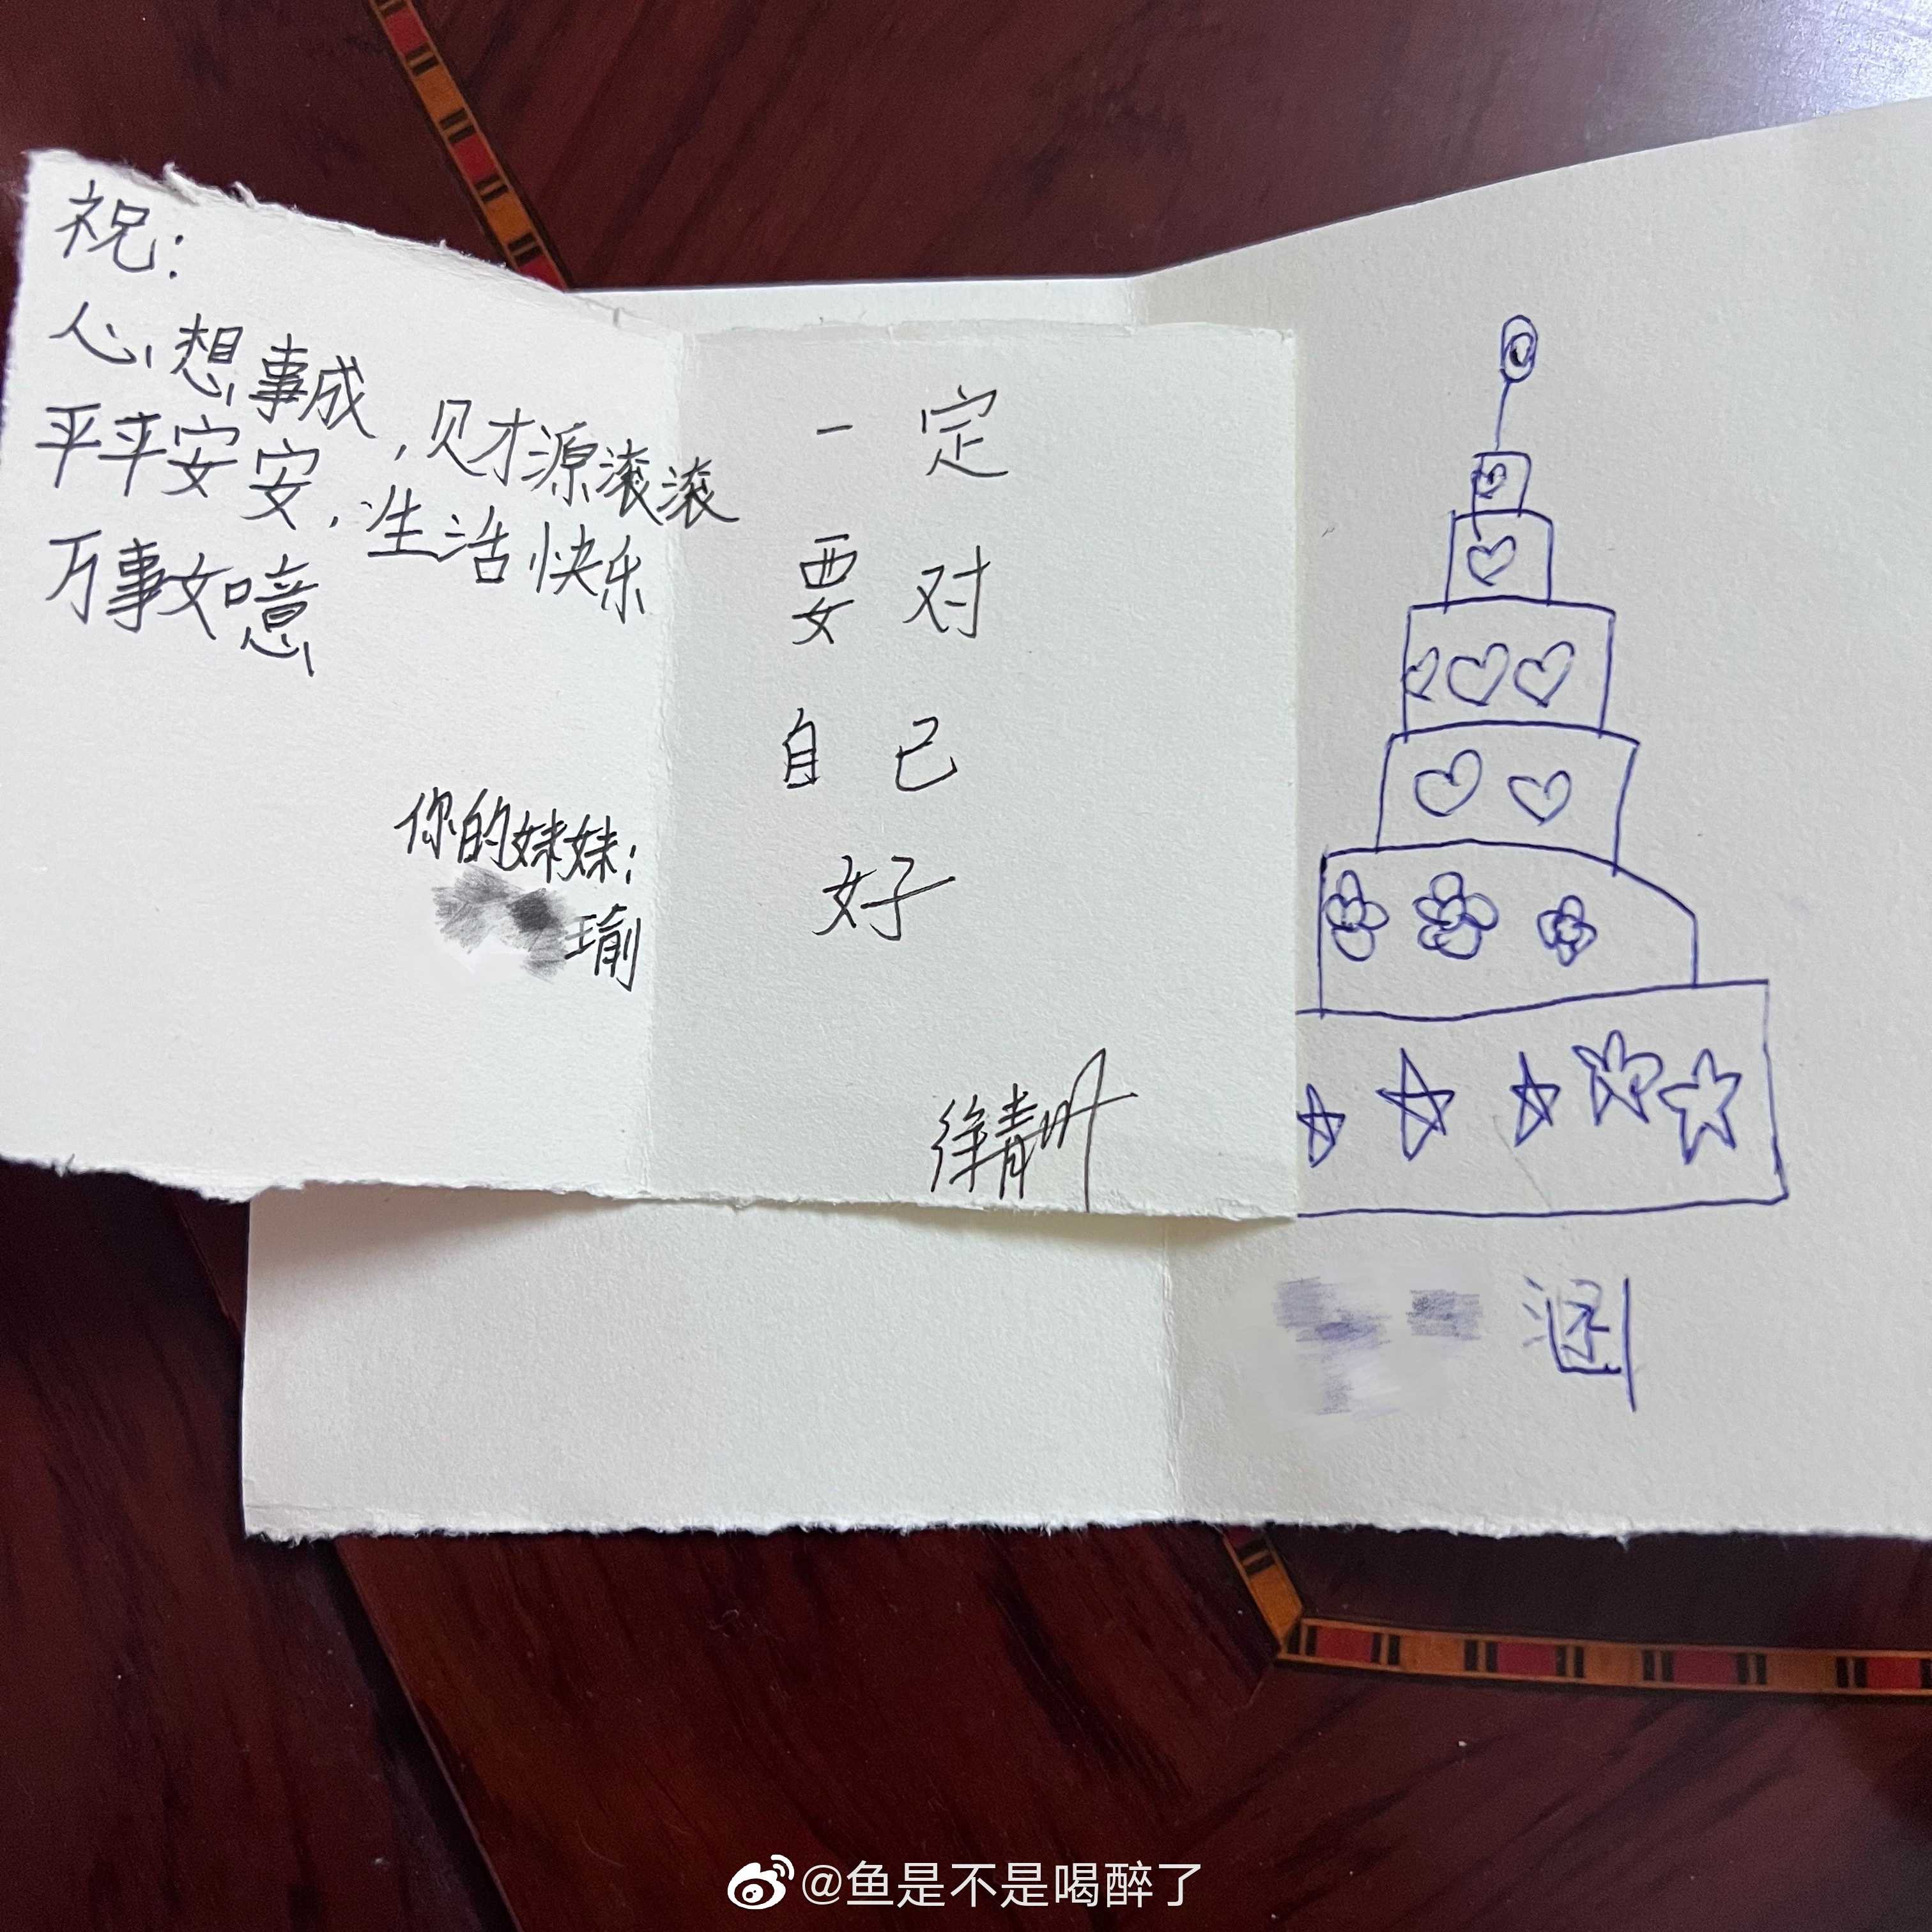 祝：
心想事成，财源滚滚
平平安安，生活快乐
万事如噫
你的妹妹：
瑜
一定
要对
自己
好
徐青
涵
@鱼是不是喝醉了